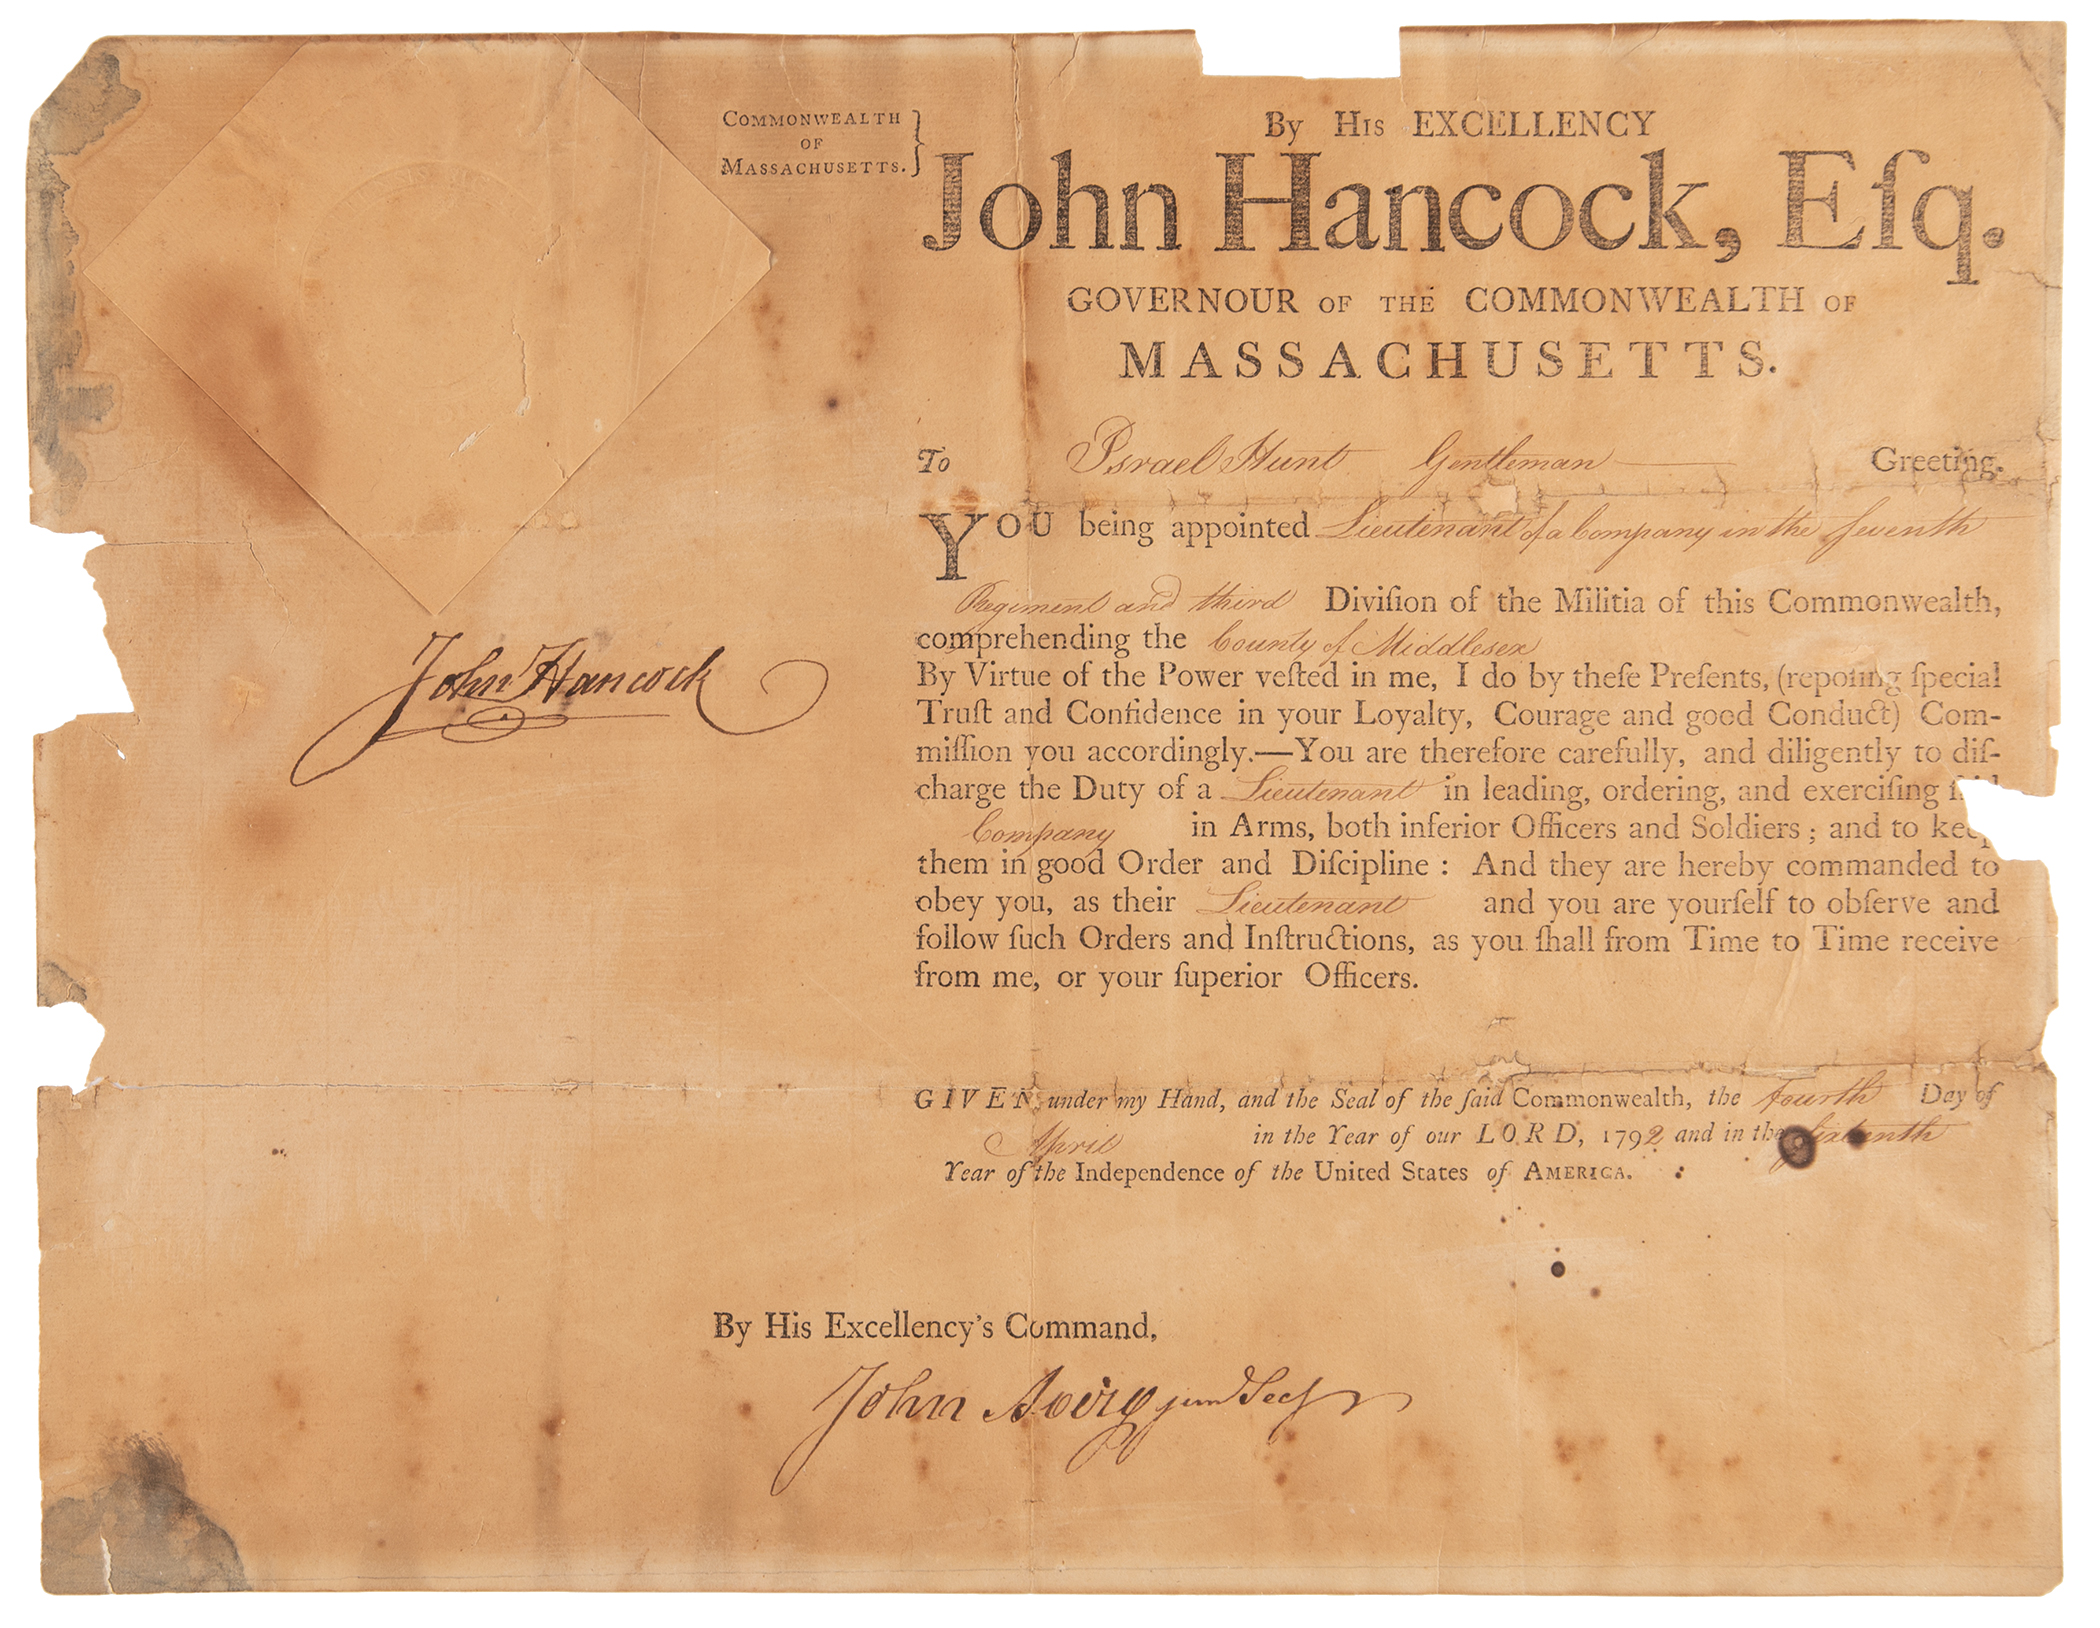 COMMONWEALTH
OF
MASSACHUSETTS. }
By His EXCELLENCY
John Hancock, Eſq.
GOVERNOUR OF THE COMMONWEALTH OF
MASSACHUSETTS.
To Israel Hunt Gentleman Greeting.
YOU being appointed Lieutenant of a Company in the Seventh
Regiment and third Diviſion of the Militia of this Commonwealth,
comprehending the County of Middlesex
By Virtue of the Power veſted in me, I do by theſe Preſents, (repoſing ſpecial
Truſt and Confidence in your Loyalty, Courage and good Conduct) Com-
miſſion you accordingly.—You are therefore carefully, and diligently to diſ-
charge the Duty of a Lieutenant in leading, ordering, and exerciſing ſaid
Company in Arms, both inferior Officers and Soldiers; and to keep
them in good Order and Diſcipline: And they are hereby commanded to
obey you, as their Lieutenant and you are yourſelf to obſerve and
follow ſuch Orders and Inſtructions, as you ſhall from Time to Time receive
from me, or your ſuperior Officers.
GIVEN under my Hand, and the Seal of the ſaid Commonwealth, the Fourth Day of
April in the Year of our LORD, 1792 and in the Sixteenth
Year of the Independence of the United States of AMERICA.
John Hancock
By His Excellency's Command,
John Avery junr Secy